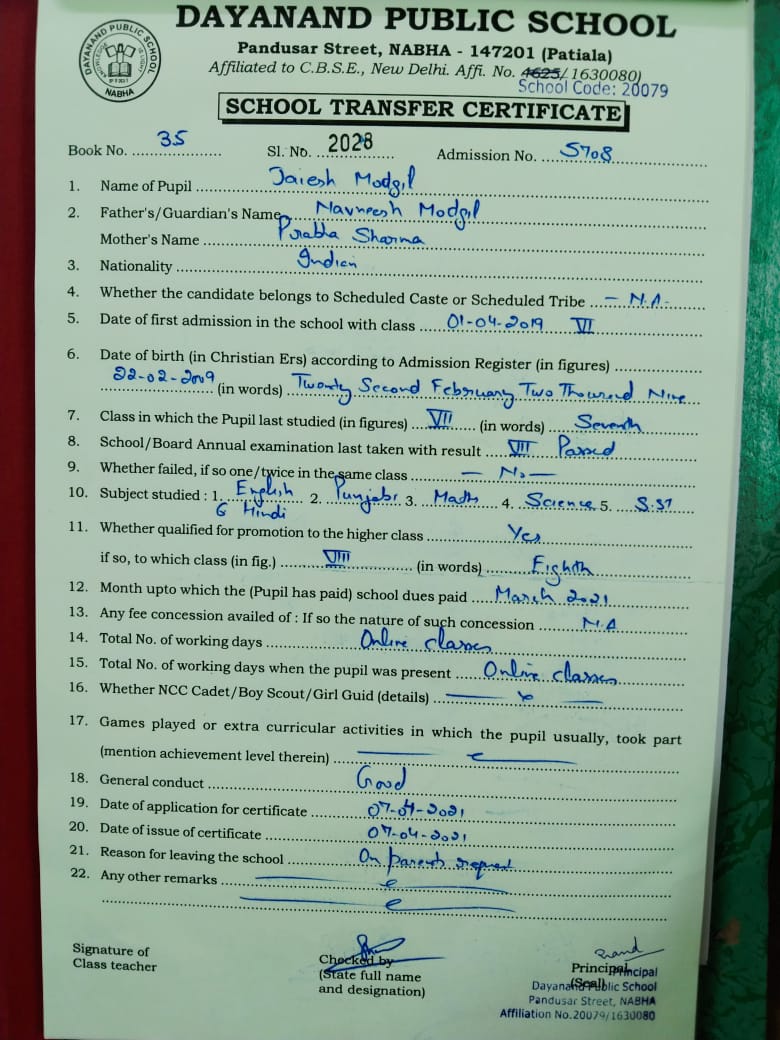 DAYANAND PUBLIC SCHOOL
Pandusar Street, NABHA - 147201 (Patiala)
Affiliated to C.B.S.E., New Delhi. Affi. No. 4625/1630080)
School Code: 20079
DAYANAND PUBLIC SCHOOL
NABHA
SCHOOL TRANSFER CERTIFICATE
Book No. 35 Sl. No. 2028 Admission No. 5708
1. Name of Pupil Jaiesh Modgil
2. Father's/Guardian's Name Navneesh Modgil
Mother's Name Prabha Sharma
3. Nationality Indian
4. Whether the candidate belongs to Scheduled Caste or Scheduled Tribe - N.A.
5. Date of first admission in the school with class 01-04-2019 VI
6. Date of birth (in Christian Ers) according to Admission Register (in figures)
22-02-2009 (in words) Twenty Second February Two Thousand Nine
7. Class in which the Pupil last studied (in figures) VII (in words) Seventh
8. School/Board Annual examination last taken with result VII Passed
9. Whether failed, if so one/twice in the same class - No -
10. Subject studied : 1. English 2. Punjabi 3. Math 4. Science 5. S.St
6 Hindi
11. Whether qualified for promotion to the higher class Yes
if so, to which class (in fig.) VIII (in words) Eighth
12. Month upto which the (Pupil has paid) school dues paid March 2021
13. Any fee concession availed of : If so the nature of such concession N.A
14. Total No. of working days Online classes
15. Total No. of working days when the pupil was present Online classes
16. Whether NCC Cadet/Boy Scout/Girl Guid (details) - x -
17. Games played or extra curricular activities in which the pupil usually, took part
(mention achievement level therein)
18. General conduct Good
19. Date of application for certificate 07-04-2021
20. Date of issue of certificate 07-04-2021
21. Reason for leaving the school On parents request
22. Any other remarks
Signature of
Class teacher
Checked by
(State full name
and designation)
Principal
(Seal)
Principal
Dayanand Public School
Pandusar Street, NABHA
Affiliation No.20079/1630080